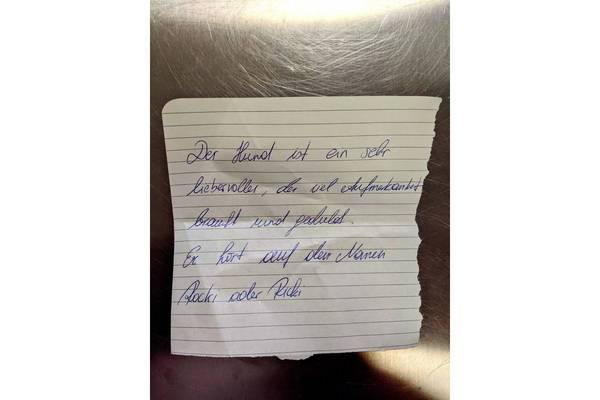 Der Hund ist ein sehr
liebervoller, der vel Aufmerkamkeit
brauft und geduld.
Er hört auf den Namen
Rocki oder Ricki